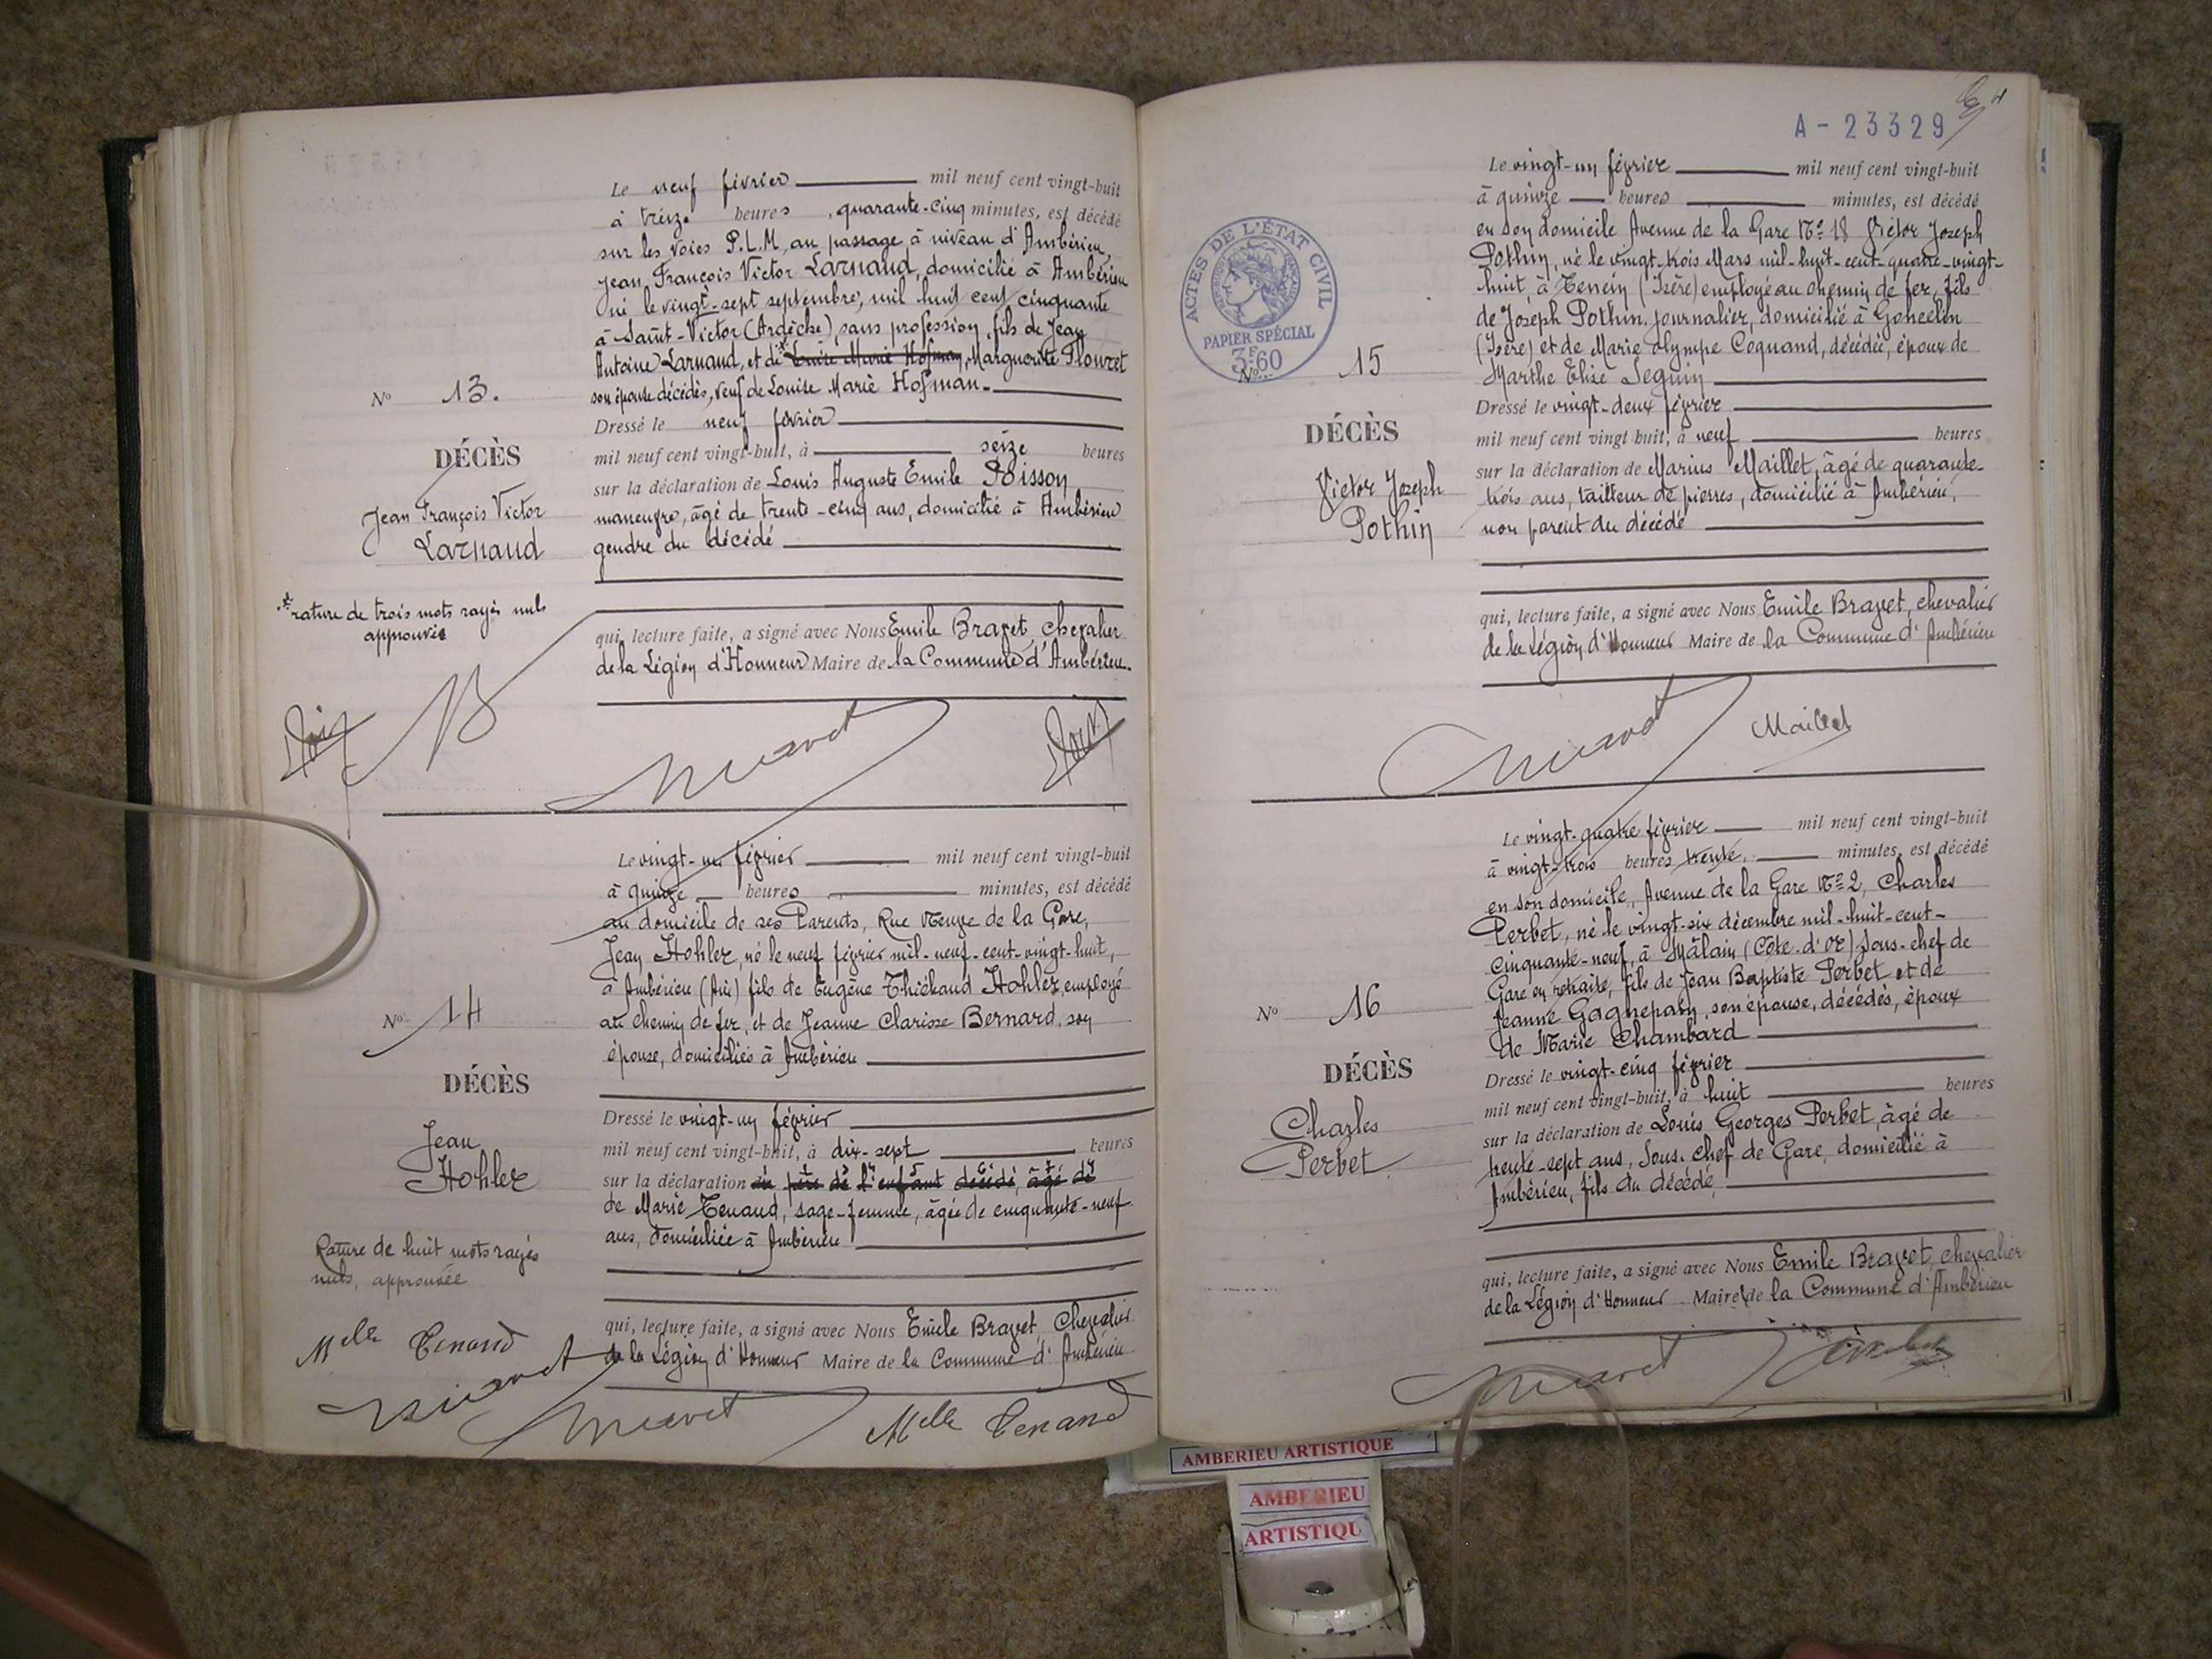 Le neuf février mil neuf cent vingt-huit
à treize heures, quarante-cinq minutes, est décédé
sur les voies P.L.M, au passage à niveau d'Ambérieu,
Jean François Victor Larnaud, domicilié à Ambérieu
né le vingt-sept septembre, mil huit cent cinquante
à Saint-Victor (Ardèche) sans profession, fils de Jean
Antoine Larnaud, et de Louise Marie Hofman, Marguerite Plouzet
son épouse décédés, veuf de Louise Marie Hofman.
N° 13.
Dressé le neuf février
DÉCÈS
mil neuf cent vingt-huit, à seize heures
sur la déclaration de Louis Auguste Emile Poisson
Jean François Victor
Larnaud
manœuvre, âgé de trente-cinq ans, domicilié à Ambérieu
gendre du décédé
rature de trois mots rayés nuls
approuvée
qui, lecture faite, a signé avec Nous Emile Bravet, chevalier
de la Légion d'Honneur Maire de la Commune d'Ambérieu.
Le vingt-un février mil neuf cent vingt-huit
à quinze heures minutes, est décédé
au domicile de ses Parents, Rue Neuve de la Gare,
Jean Hohler, né le neuf février mil-neuf-cent-vingt-huit,
à Ambérieu (Ain) fils de Eugène Thiébaud Hohler, employé
N° 14
au chemin de fer, et de Jeanne Clarisse Bernard, son
épouse, domiciliés à Ambérieu
DÉCÈS
Jean
Hohler
Dressé le vingt-un février
mil neuf cent vingt-huit, à dix-sept heures
sur la déclaration du père de l'enfant décédé, âgé de
de Marie Tenand, sage-femme, âgée de cinquante-neuf
ans, domiciliée à Ambérieu
Rature de huit mots rayés
nuls, approuvée
qui, lecture faite, a signé avec Nous Emile Bravet, Chevalier
de la Légion d'Honneur Maire de la Commune d'Ambérieu
Melle Tenand
Bravet
Bravet
Melle Tenand
A-23329
Le vingt-un février mil neuf cent vingt-huit
à quinze heures minutes, est décédé
en son domicile Avenue de la Gare N° 18 Victor Joseph
Pothin, né le vingt-trois Mars mil-huit-cent-quatre-vingt-
huit, à Tencin (Isère) employé au chemin de fer, fils
de Joseph Pothin, journalier, domicilié à Goncelin
(Isère) et de Marie Olympe Coquand, décédée, époux de
Marthe Elise Seguin
ACTES DE L'ÉTAT CIVIL
PAPIER SPÉCIAL
3F60
N° 15
Dressé le vingt-deux février
DÉCÈS
mil neuf cent vingt huit, à neuf heures
sur la déclaration de Marius Maillet, âgé de quarante-
trois ans, tailleur de pierres, domicilié à Ambérieu,
non parent du décédé
Victor Joseph
Pothin
qui, lecture faite, a signé avec Nous Emile Bravet, chevalier
de la Légion d'Honneur Maire de la Commune d'Ambérieu
Bravet
Maillet
Le vingt-quatre février mil neuf cent vingt-huit
à vingt-trois heures trente, minutes, est décédé
en son domicile, Avenue de la Gare N° 2, Charles
Perbet, né le vingt-six décembre mil-huit-cent-
cinquante-neuf, à Mâlain (Côte-d'Or) Sous-chef de
Gare en retraite, fils de Jean Baptiste Perbet et de
Jeanne Gagnepain, son épouse, décédés, époux
de Marie Chambard
N° 16
DÉCÈS
Charles
Perbet
Dressé le vingt-cinq février
mil neuf cent vingt-huit, à huit heures
sur la déclaration de Louis Georges Perbet, âgé de
trente-sept ans, Sous-chef de Gare, domicilié à
Ambérieu, fils du décédé,
qui, lecture faite, a signé avec Nous Emile Bravet, chevalier
de la Légion d'Honneur Maire de la Commune d'Ambérieu
Bravet
AMBERIEU ARTISTIQUE
AMBERIEU
ARTISTIQU